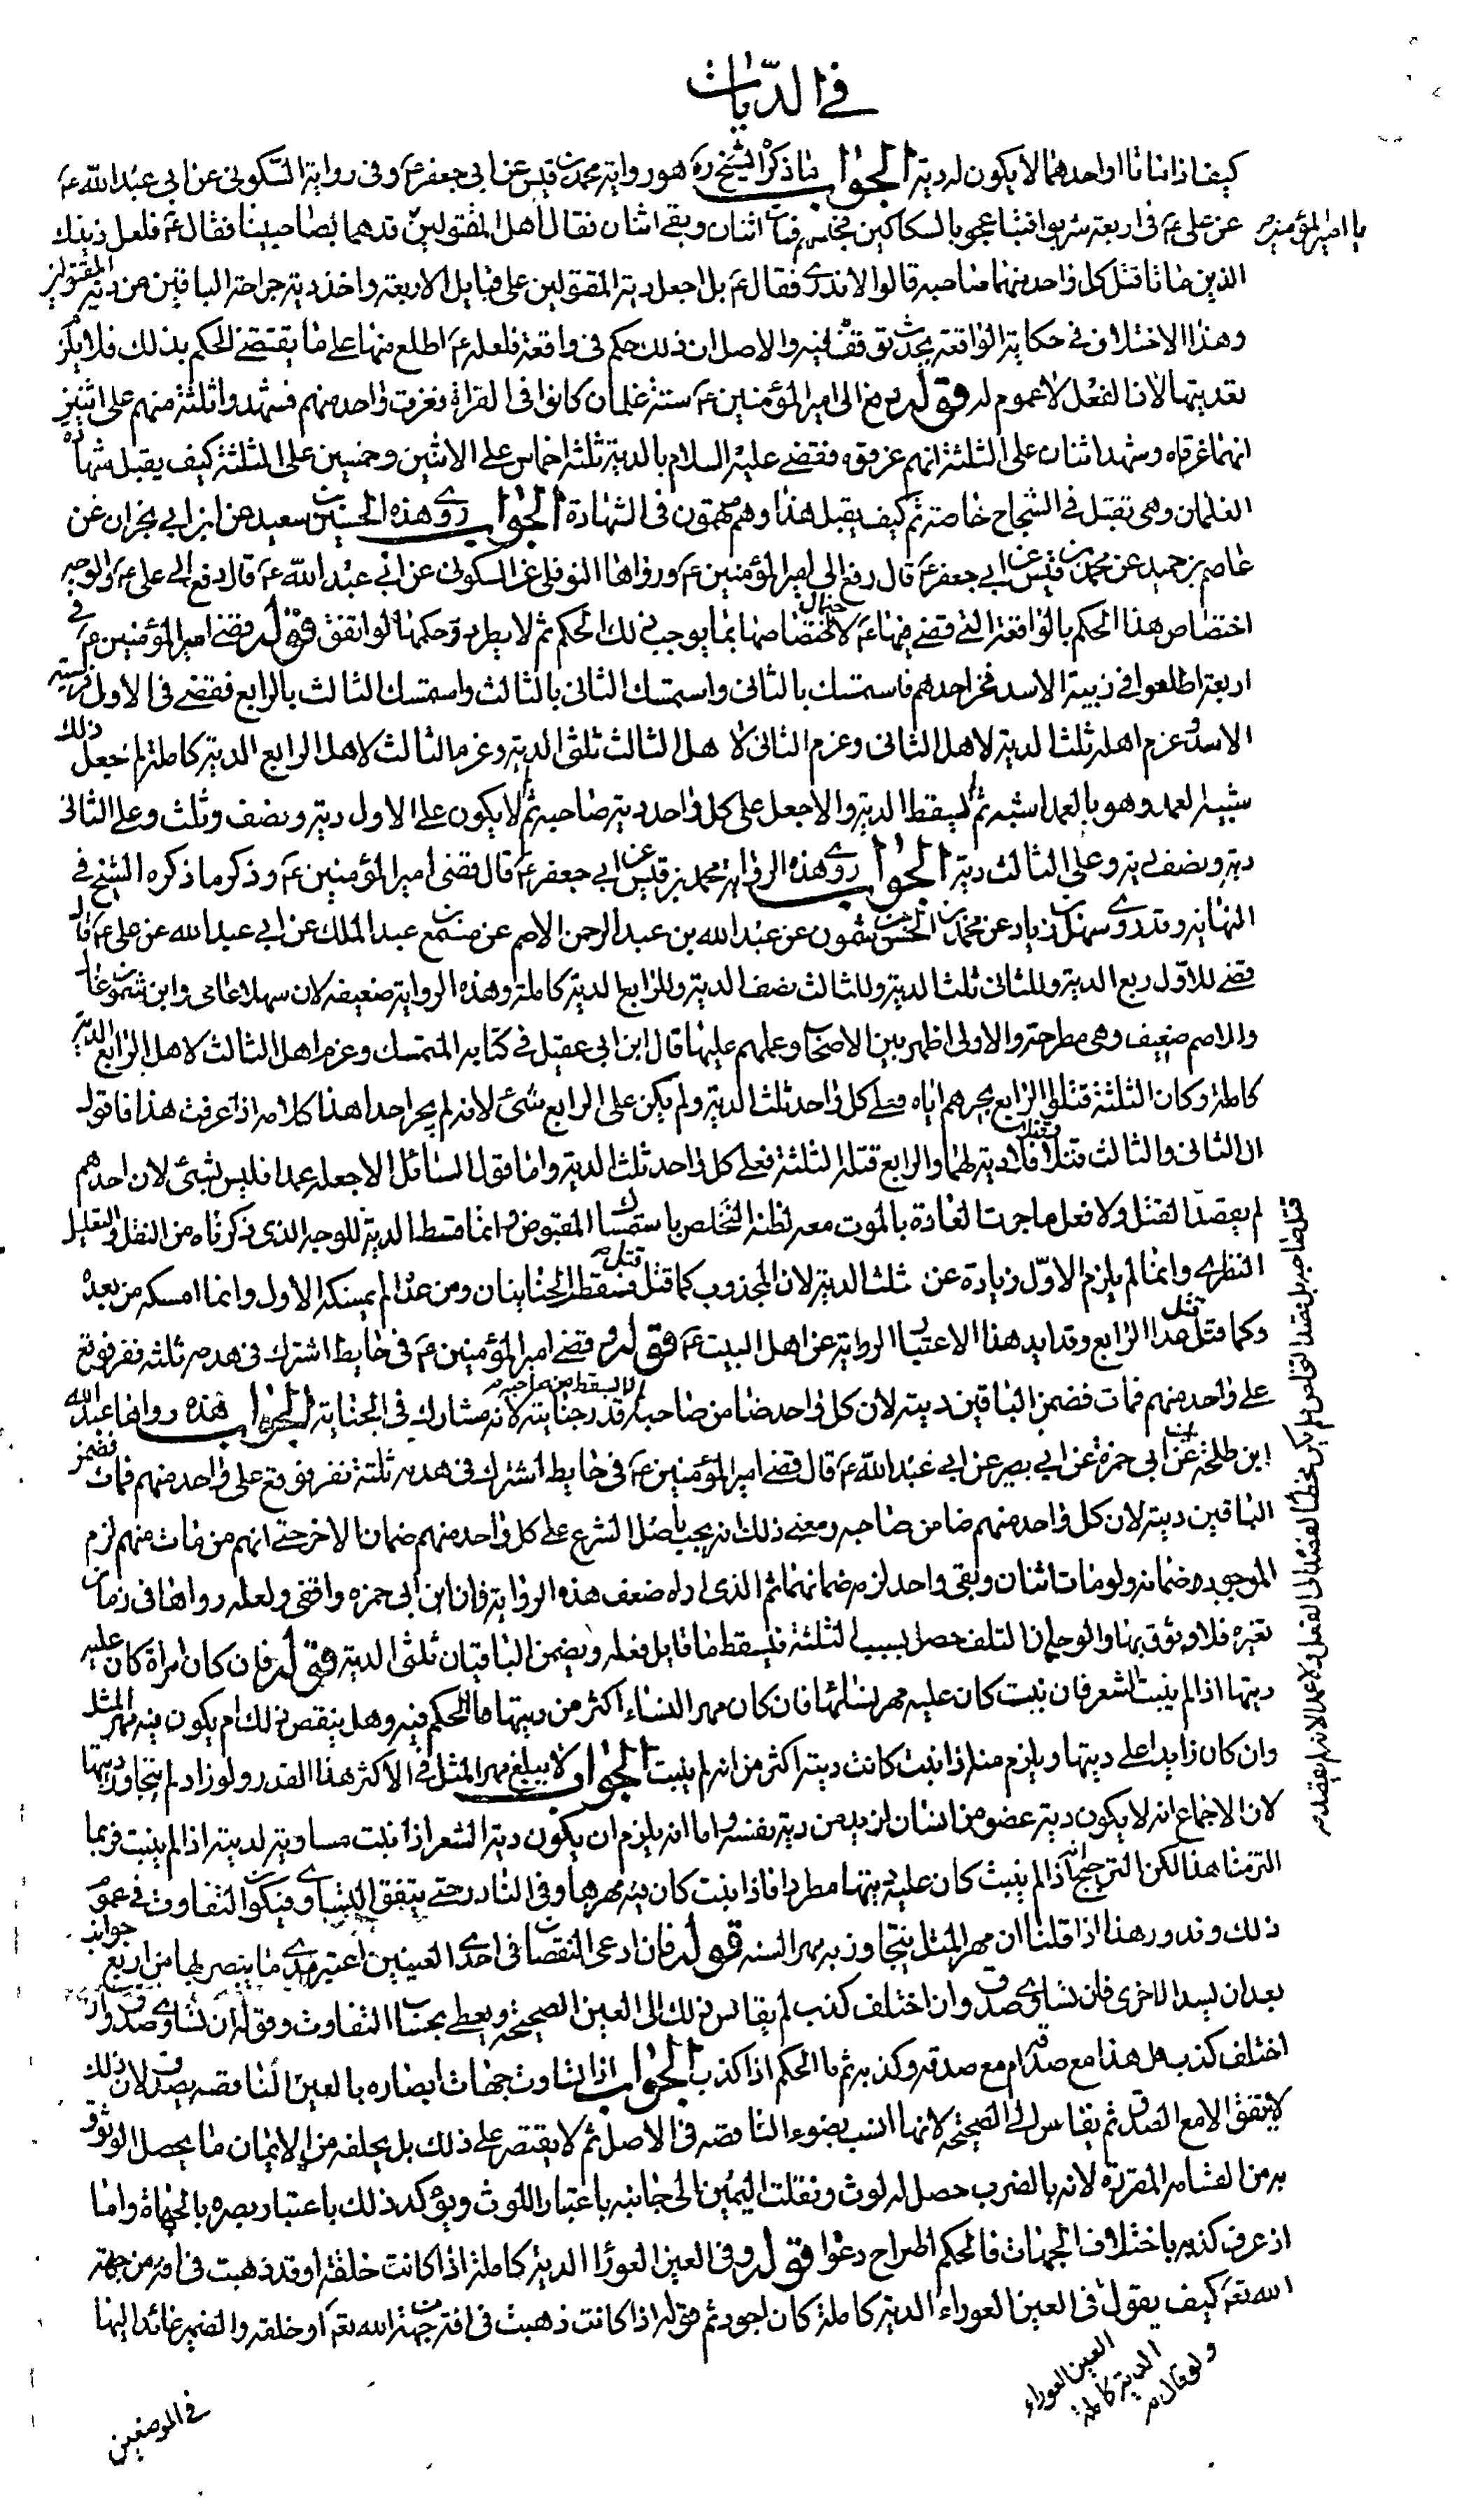 في الديات
كيف اذا ماتا او احدهما لا يكون له دية الجواب ما ذكره الشيخ ره هو رواية محمد بن قيس عن ابي جعفر ع وفي رواية السكوني عن ابي عبد الله ع
عن علي ع في اربعة شربوا فتباعجوا بالسكاكين فمات اثنان وبقي اثنان فقال اهل المقتولين قدهما بصاحبينا فقال ع فلعل ذينك
يا امير المؤمنين
الذين ماتا قتل كل واحد منهما صاحبه قالوا لا ندري فقال ع بل اجعل دية المقتولين على قبايل الاربعة واخذ دية جراحة الباقين من دية المقتولين
وهذا الاختلاف في حكاية الواقعة يحدث توقفا فيه والاصل ان ذلك حكم في واقعة فلعله ع اطلع منها على ما يقتضي الحكم بذلك فلا يلزم
تعديتها لان الفعل لا عموم له قوله رفع الى امير المؤمنين ع ستة غلمان كانوا في الفراة فغرق واحد منهم فشهد ثلثة منهم على اثنين
انهما غرقاه وشهد اثنان على الثلثة انهم غرقوه فقضى عليه السلام بالدية ثلثة اخماس على الاثنين وخمسين على الثلثة كيف يقبل شهادة
الغلمان وهي تقبل في الشجاج خاصة ثم كيف يقبل هذا وهم متهمون في الشهادة الجواب روى هذه الحسين بن سعيد عن ابن ابي نجران عن
عاصم بن حميد عن محمد بن قيس عن ابي جعفر ع قال رفع الى امير المؤمنين ع ورواها النوفلي عن السكوني عن ابي عبد الله ع قال رفع الى علي ع والوجه
اختصاص هذا الحكم بالواقعة التي قضى فيها ع لاحتمال اختصاصها بما يوجب ذلك الحكم ثم لا يطرد حكمها لو اتفق قوله وقضى امير المؤمنين ع في
اربعة اطلعوا في زبية الاسد فخر احدهم فاستمسك بالثاني واستمسك الثاني بالثالث واستمسك الثالث بالرابع فقضى في الاول فريسة
الاسد وغرم اهله ثلث الدية لاهل الثاني وغرم الثاني لاهل الثالث ثلثي الدية وغرم الثالث لاهل الرابع الدية كاملة لم جعل ذلك
شبيه العمد وهو بالعمد اشبه ثم لم يسقط الدية والا جعل على كل واحد دية صاحبه ثم لم لا يكون على الاول دية ونصف وثلث وعلى الثاني
دية ونصف دية وعلى الثالث دية الجواب روى هذه الرواية محمد بن قيس عن ابي جعفر ع قال قضى امير المؤمنين ع وذكر ما ذكره الشيخ في
النهاية وقد روى سهل بن زياد عن محمد بن الحسن بن شمون عن عبد الله بن عبد الرحمن الاصم عن مسمع بن عبد الملك عن ابي عبد الله عن علي ع قال
قضى للاول ربع الدية وللثاني ثلث الدية وللثالث نصف الدية وللرابع الدية كاملة وهذه الرواية ضعيفة لان سهلا عامي وابن شمون غال
والاصم ضعيف وهي مطرحة والاولى اظهر بين الاصحاب وعملهم عليها قال ابن ابي عقيل في كتابه المتمسك وغرم اهل الثالث لاهل الرابع الدية
كاملة وكان الثلثة قتلوا الرابع بجرهم اياه فعلى كل واحد ثلث الدية ولم يكن على الرابع شيء لانه لم يجر احدا هذا كلامه اذا عرفت هذا فاقول
ان الثاني والثالث قتلا فلا دية لهما والرابع قتله الثلثة فعلى كل واحد ثلث الدية واما قول السائل الا جعله عمدا فليس بشيء لان احدهم
لم يقصد القتل ولا فعل ما جرت العادة بالموت معه لظنه التخلص باستمساك المقبوض وانما قسط الدية للوجه الذي ذكرناه من النقل والتعليل
قتل صاحبه بل قصد التخلص فلم يكن مخطئا لقصده الى الفعل ولا عمدا لانه لم يقصده
النظري وانما لم يلزم الاول زيادة عن ثلث الدية لان المجذوب كما قتل قتل فسقط الجنايتان ومن عداه لم يمسكه الاول وانما امسكه من بعده
وكما قتل قتل عدا الرابع وقد ايد هذا الاعتبار الرواية عن اهل البيت ع قوله وقضى امير المؤمنين ع في حايط اشترك في هدمه ثلثة نفر فوقع
على واحد منهم فمات فضمن الباقين ديته لان كل واحد ضامن صاحبه الا يسقط من صاحبه قدر جنايته لانه مشارك في الجناية الجواب هذه رواها عبد الله
ابن طلحة عن ابن ابي حمزة عن ابي بصير عن ابي عبد الله ع قال قضى امير المؤمنين ع في حايط اشترك في هدمه ثلثة نفر فوقع على واحد منهم فمات فضمن
الباقين ديته لان كل واحد منهم ضامن صاحبه ومعنى ذلك انه يجب باصل الشرع على كل واحد منهم ضمان الاخر حتى انهم من مات منهم لزم
الموجود ضمانه ولو مات اثنان وبقي واحد لزمه ضمانهما ثم الذي اراه ضعف هذه الرواية فان ابن ابي حمزه واقفي ولعله رواها في زمان
تغيره فلا وثوق بها والوجه ان التلف حصل بسبب الثلثة فيسقط ما قابل فعله ويضمن الباقيان ثلثي الدية قوله فان كان امراة كان عليه
ديتها اذا لم ينبت الشعر فان نبت كان عليه مهر نسائها فان كان مهر النساء اكثر من ديتها ما الحكم فيه وهل ينقص ذلك ام يكون فيه مهر المثل
وان كان زايدا على ديتها ويلزم منه اذا نبت كانت ديته اكثر من انه لم ينبت الجواب لا يبلغ مهر المثل في الاكثر هذا القدر ولو زاد لم يتجاوز ديتها
لان الاجماع انه لا يكون دية عضو من انسان ازيد من دية نفسه واما انه يلزم ان يكون دية الشعر اذا نبت مساوية لديته اذا لم ينبت فربما
التزمنا هذا لكن الترجيح انه اذا لم ينبت كان عليه ديتها مطردا فاذا نبت كان فيه مهرها وفي النادر حتى يتفق التساوي فيكون التفاوت في عموم
ذلك وندور هذا اذا قلنا ان مهر المثل يتجاوز به مهر السنه قوله فان ادعى النقصان في احدى العينين اعتبر مدى ما يبصر بها من اربع جوانب
بعد ان يسد الاخرى فان تساوى صدق وان اختلف كذب لم يقاس ذلك الى العين الصحيحة ويعطى بحساب التفاوت وقوله ان تساوى صدق وان
اختلف كذب هل هذا مع صدقه ام مع صدقه وكذبه ثم ما الحكم اذا كذب الجواب اذا تساوت جهات ابصاره بالعين الناقصه يصدق لان ذلك
لا يتفق الا مع الصدق ثم يقاس الى الصحيحة لانها انسب بضوء الناقصه في الاصل ثم لا يقتصر على ذلك بل يحلفه من الايمان ما يحصل الوثوق
به من القسامه المقررة لانه بالضرب حصل له لوث ونقلت اليمين الى جانبه باعتبار اللوث ويؤكد ذلك باعتبار بصره بالجهات واما
اذ عرف كذبه باختلاف الجهات فالحكم اطراح دعواه قوله وفي العين العوراء الدية كاملة اذا كانت خلقة او قد ذهبت في افة من جهة
الله تع كيف يقول في العين العوراء الدية كاملة كان اجود ثم قوله اذا كانت ذهبت في افة من جهة الله تع او خلقة والضمير عائد اليها
ولو قال في
الدية كاملة
العين العوراء
في الموضعين